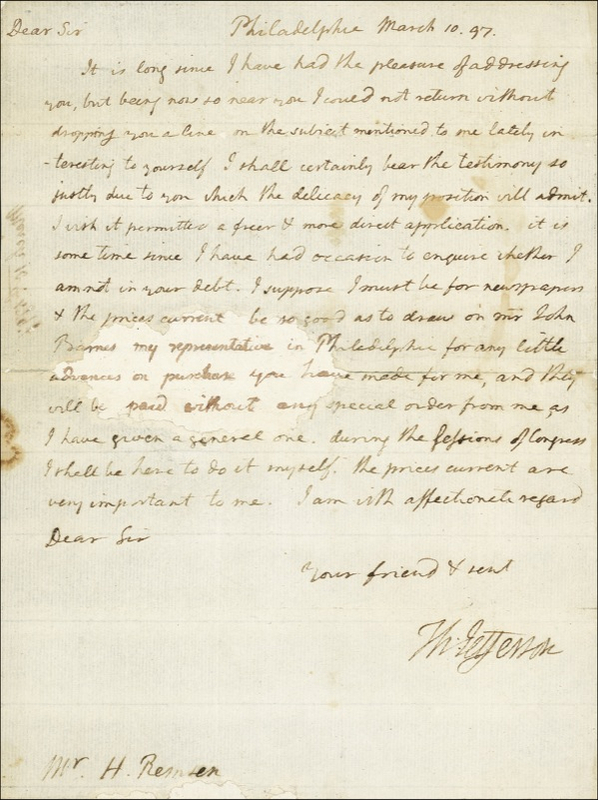 Dear Sir Philadelphia March 10. 97.
It is long since I have had the pleasure of addressing
you, but being now so near you I could not return without
dropping you a line on the subject mentioned to me lately in
-teresting to yourself I shall certainly bear the testimony so
justly due to you which the delicacy of my position will admit.
I wish it permitted a freer & more direct application. it is
some time since I have had occasion to enquire whether I
am not in your debt. I suppose I must be for newspapers
& the prices current be so good as to draw on mr John
Barnes my representative in Philadelphia for any little
advances or purchase you have made for me, and they
will be paid without any special order from me as
I have given a general one. during the sessions of Congress
I shall be here to do it myself. the prices current are
very important to me. I am with affectionate regard
Dear Sir
Your friend & servt
Th: Jefferson
Mr. H. Remsen